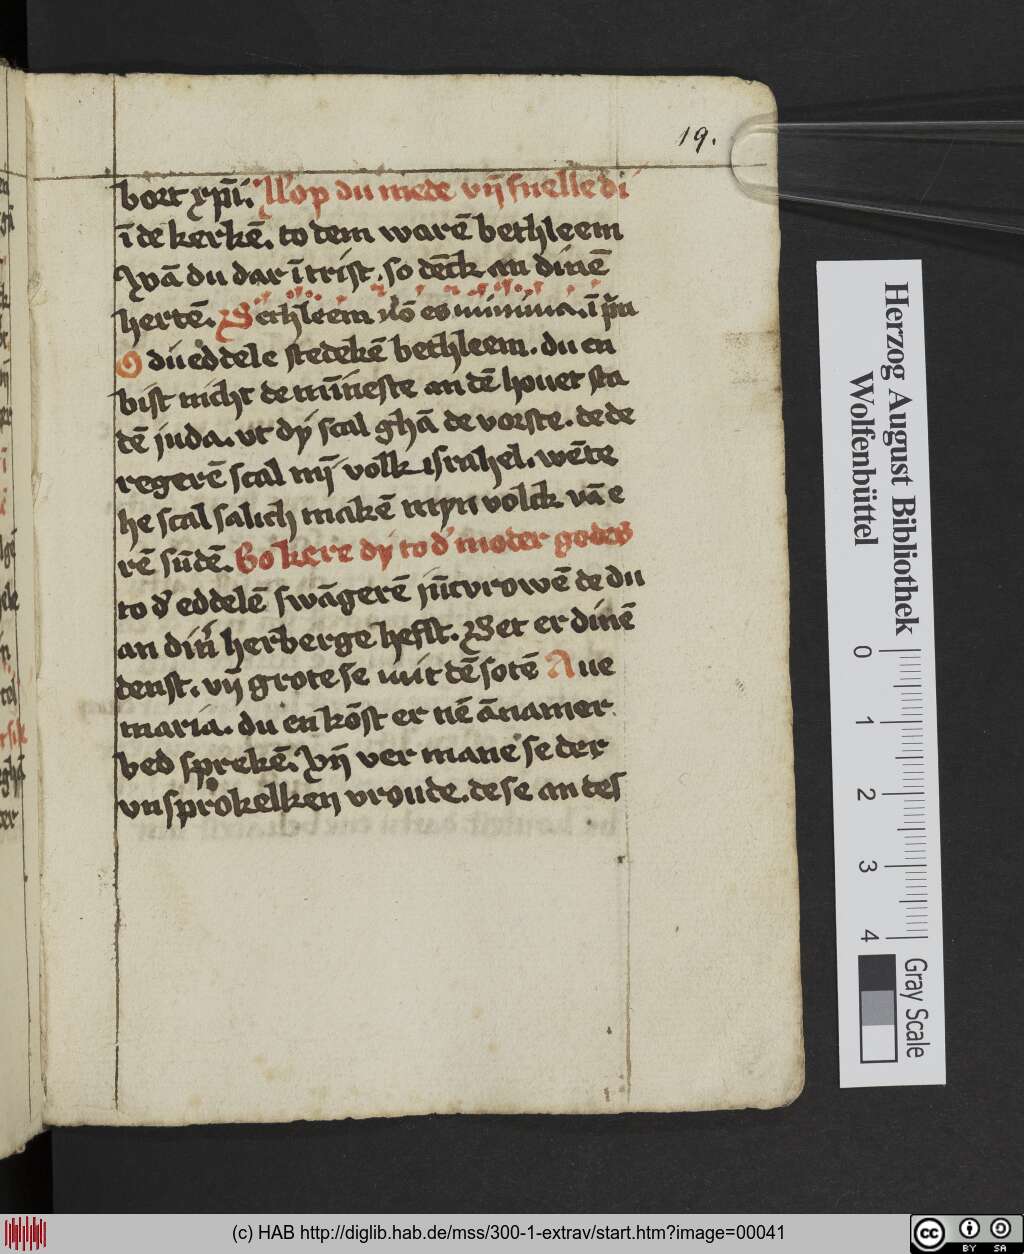 19.
bort xp̄i. Nop du mede vn̄ snelle di
ī de kerkē. to dem warē bethleem
Wā du dar ī trist. so dēck an dinē
hertē. Bethleem nō es minima. ī p̄n
O du eddele stedekē bethleem. du en
bist nicht de mīneste an dē houet sta
dē juda. vt dy scal ghā de vorste. de de
regerē scal mȳ volk israhel. wēte
he scal salich makē myn volck vā e
rē sūdē. So kere dy to d' moder godes
to d' eddelē swāgerē jūcvrowē de du
an din' herberge hefst. Bet er dinē
denst. vn̄ grote se mit dē sotē Aue
maria. du en kōst er nē ānamer
bed sprekē. Vn̄ vermane se der
vnsprokelken vroude. de se an des
Herzog August Bibliothek
Wolfenbüttel
0 1 2 3 4
Gray Scale
(c) HAB http://diglib.hab.de/mss/300-1-extrav/start.htm?image=00041
cc BY SA